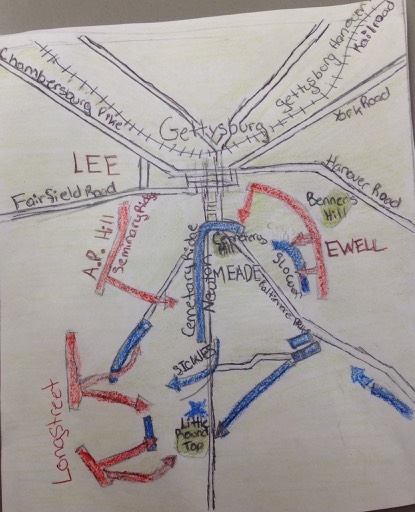 Chambersburg Pike
Gettysburg Hanover
Railroad
Gettysburg
York Road
LEE
Hanover Road
Fairfield Road
Benner's
Hill
A.P. Hill
Seminary Ridge
Cemetery
Hill
EWELL
Slocum
MEADE
Cemetary Ridge
Newton
Baltimore Pike
SICKLES
Longstreet
Little
Round
Top